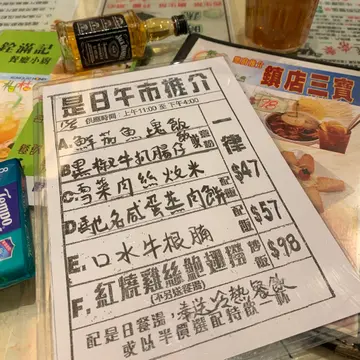 銓滿記
餐廳小廚
鎮店三寶
78
是日午市推介
供應時間：上午11:00 至 下午4:00
A. 鮮茄魚塊飯
B. 黑椒牛扒腸仔
C. 雪菜肉絲炆米
一律 $47
D. 馳名咸蛋蒸肉餅 配飯 $57
E. 口水牛根腩 配飯
F. 紅燒雞絲鮑翅撈飯 $98
(不另送餐湯)
配是日餐湯，奉送冷熱餐飲
或以半價選配特飲
Tempo